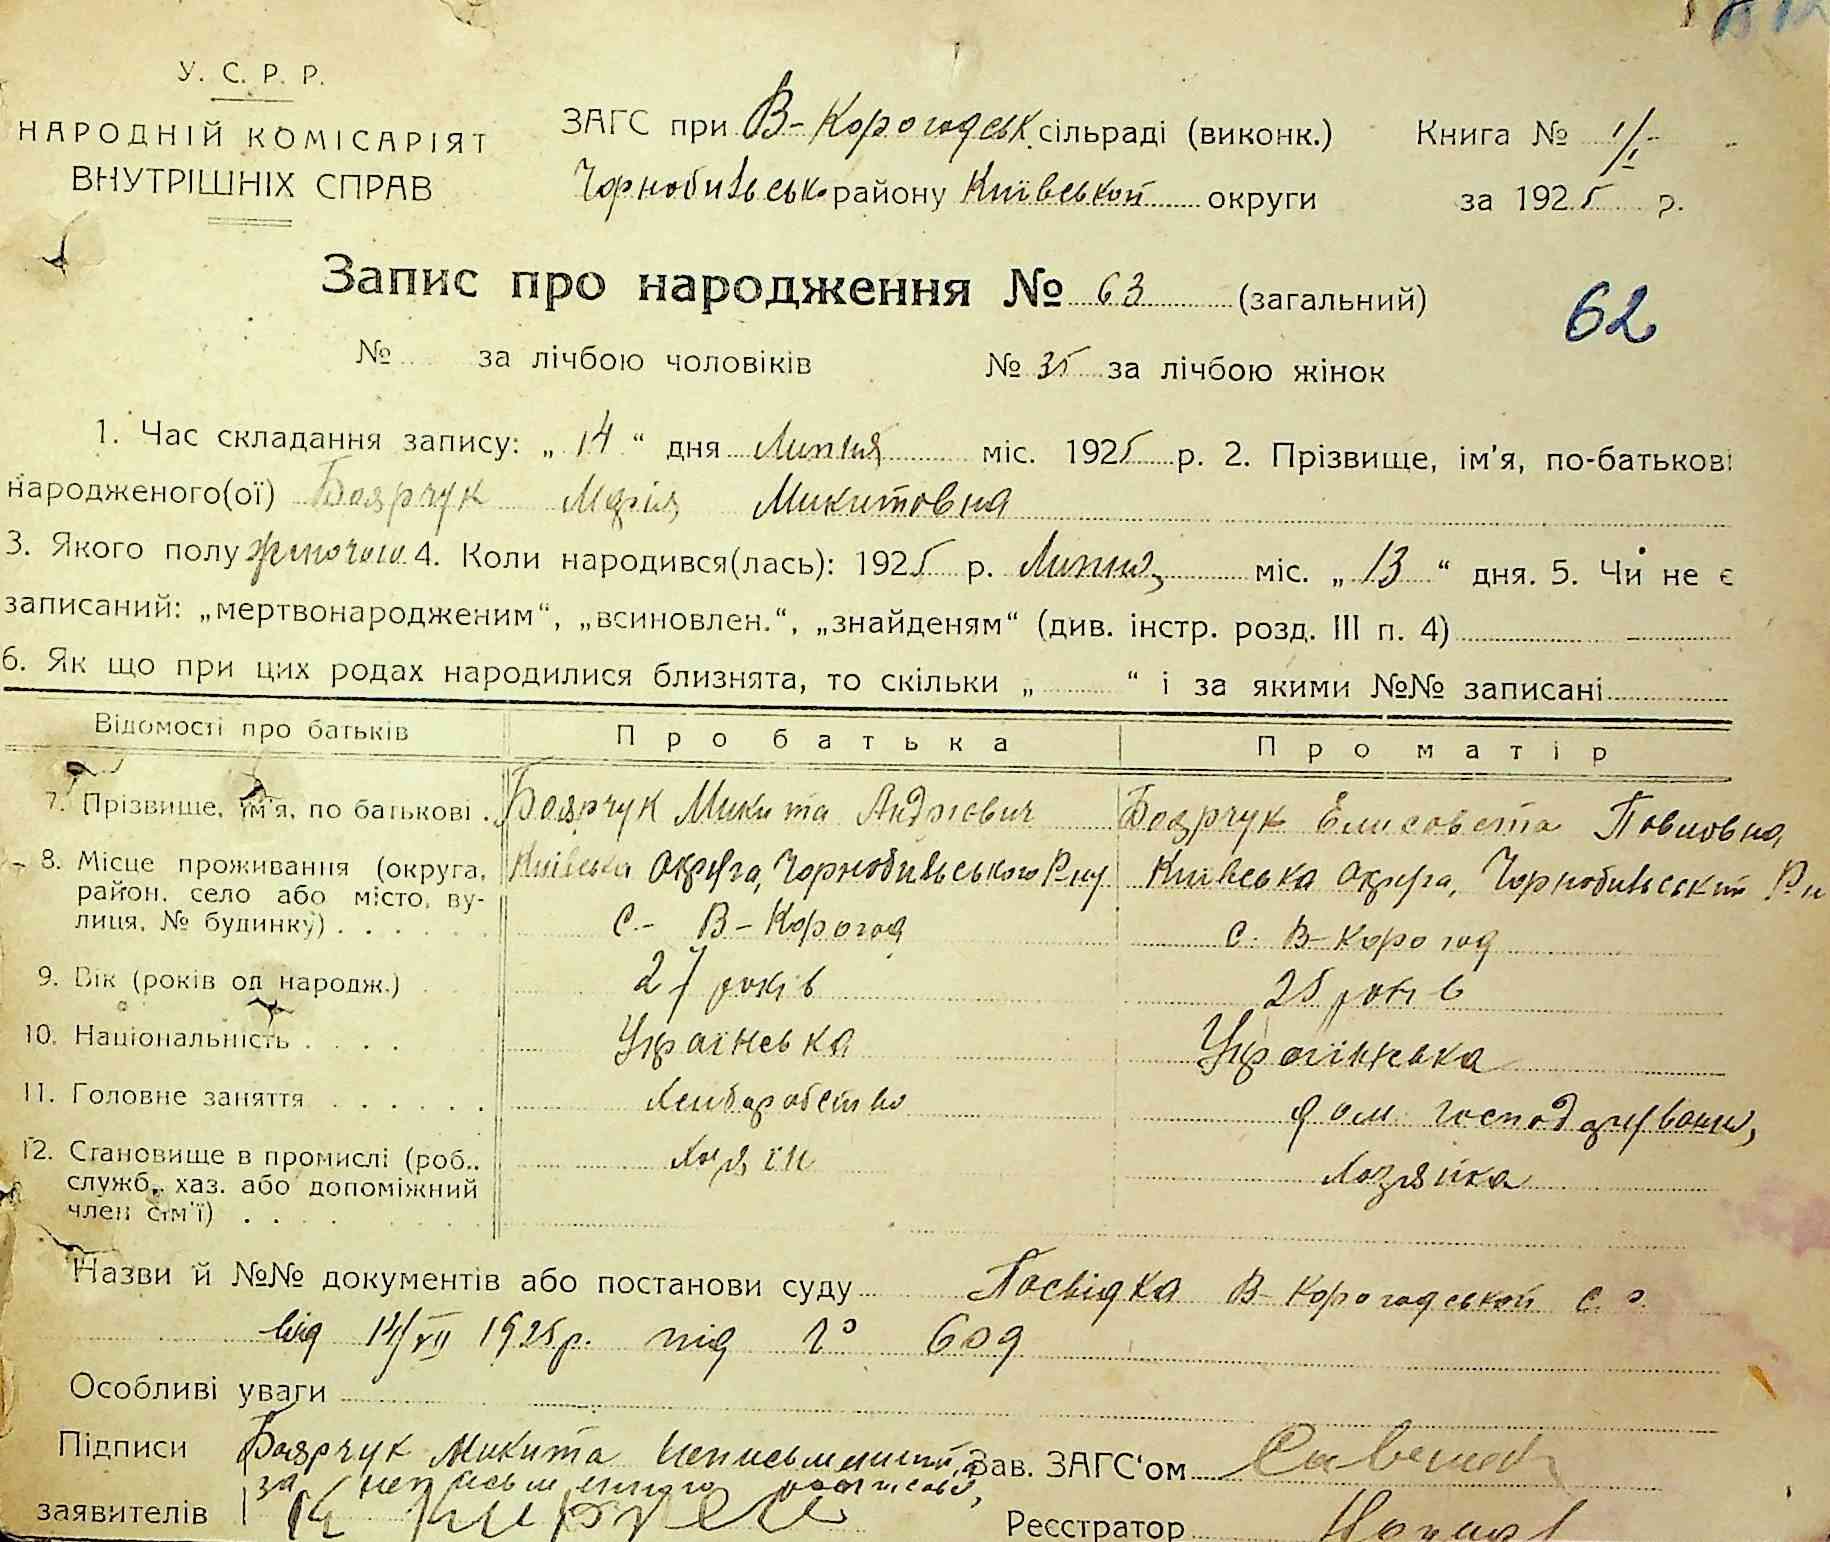 У. С. Р. Р.
НАРОДНІЙ КОМІСАРІЯТ
ВНУТРІШНІХ СПРАВ
ЗАГС при В-Корогодськ. сільраді (виконк.) Книга № 1/1
Чорнобильськ. району Київської округи за 1925 р.
Запис про народження № 63 (загальний)
62
№ за лічбою чоловіків № 35 за лічбою жінок
1. Час складання запису: „ 14 “ дня Липня міс. 1925 р. 2. Прізвище, ім'я, по-батькові
народженого(ої) Боярчук Марія Микитовна
3. Якого полу жіночого 4. Коли народився(лась): 1925 р. Липня міс. „ 13 “ дня. 5. Чи не є
записаний: „мертвонародженим“, „всиновлен.“, „знайденям“ (див. інстр. розд. III п. 4)
6. Як що при цих родах народилися близнята, то скільки „ “ і за якими №№ записані
Відомості про батьків Про батька Про матір
7. Прізвище, ім'я, по батькові . Боярчук Микита Андрієвич Боярчук Елисовета Повловна
8. Місце проживання (округа, Київська округа, Чорнобильського Р-ну Київська округа, Чорнобильський Р-н
район, село або місто, ву-
лиця, № будинку) . . . . . . с- В-Корогод с. В-Корогод
9. Вік (років од народж.) . 27 років 25 років
10. Національність . . . . Українська Українська
11. Головне заняття . . . . . . Хліборобство дом. господарування
12. Становище в промислі (роб., Хазяїн Хозяйка
служб., хаз. або допоміжний
член сім'ї) . . . .
Назви й №№ документів або постанови суду Посвідка В-Корогодської с. р.
від 14/VII 1925 р. під № 609
Особливі уваги
Підписи Боярчук Микита Неписьменний, а Зав. ЗАГС'ом
за неписьменного росписався
заявителів Реєстратор